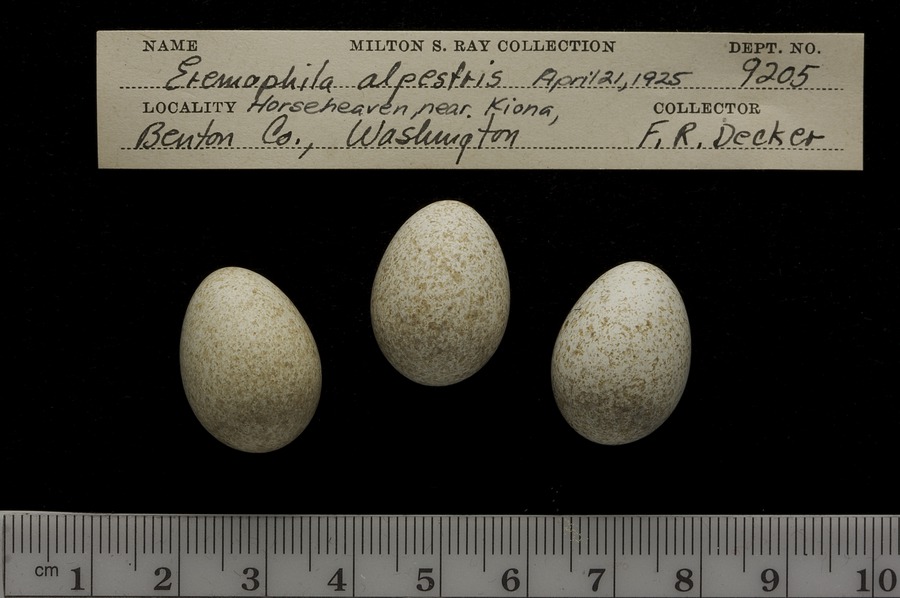 NAME MILTON S. RAY COLLECTION DEPT. NO.
Eremophila alpestris April 21, 1925 9205
LOCALITY Horseheaven, near. Kiona, COLLECTOR
Benton Co., Washington F. R. Decker
cm 1 2 3 4 5 6 7 8 9 10